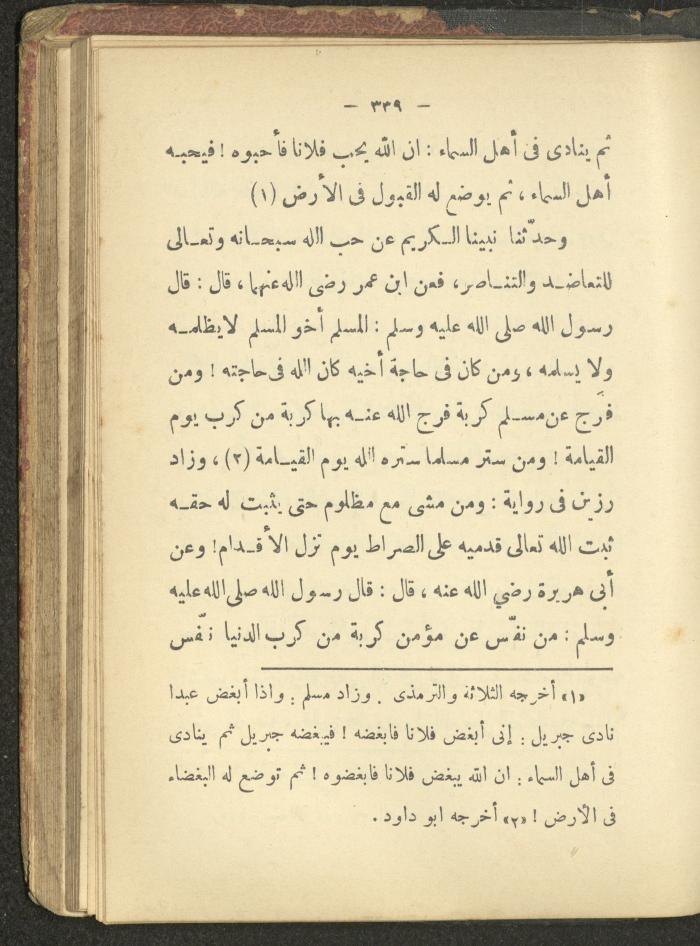 — ٣٣٩ —
ثم ينادى فى أهل السماء : ان الله يحب فلانا فأحبوه ! فيحبه
أهل السماء ، ثم يوضع له القبول فى الأرض (١)
وحدّثنا نبينا الكريم عن حب الله سبحانه وتعالى
للتعاضد والتناصر ، فعن ابن عمر رضى الله عنهما ، قال : قال
رسول الله صلى الله عليه وسلم : المسلم أخو المسلم لا يظلمه
ولا يسلمه ، ومن كان فى حاجة أخيه كان الله فى حاجته ! ومن
فرّج عن مسلم كربة فرج الله عنه بها كربة من كرب يوم
القيامة ! ومن ستر مسلما ستره الله يوم القيامة (٢) ، وزاد
رزين فى رواية : ومن مشى مع مظلوم حتى يثبت له حقه
ثبت الله تعالى قدميه على الصراط يوم تزل الأقدام ! وعن
أبى هريرة رضي الله عنه ، قال : قال رسول الله صلى الله عليه
وسلم : من نفّس عن مؤمن كربة من كرب الدنيا نفّس
«١» أخرجه الثلاثة والترمذى . وزاد مسلم : واذا أبغض عبدا
نادى جبريل : إنى أبغض فلانا فابغضه ! فيبغضه جبريل ثم ينادى
فى أهل السماء : ان الله يبغض فلانا فابغضوه ! ثم توضع له البغضاء
فى الأرض ! «٢» أخرجه ابو داود .